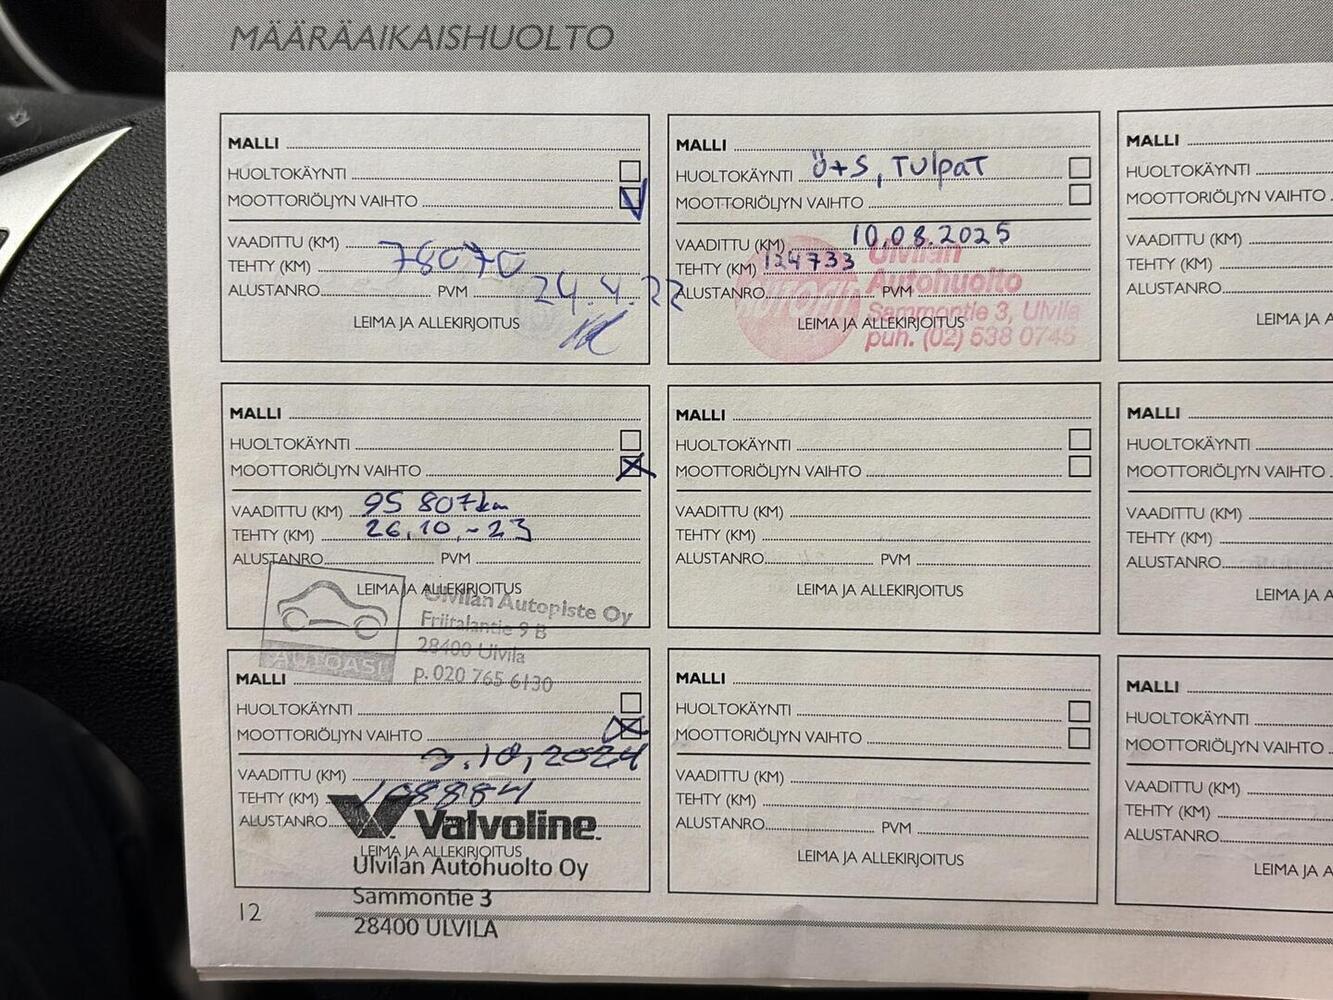 MÄÄRÄAIKAISHUOLTO
MALLI
HUOLTOKÄYNTI
MOOTTORIÖLJYN VAIHTO
VAADITTU (KM)
TEHTY (KM) 78070
ALUSTANRO PVM 24.4.22
LEIMA JA ALLEKIRJOITUS
MALLI
HUOLTOKÄYNTI Ö+S, TULPAT
MOOTTORIÖLJYN VAIHTO
VAADITTU (KM) 10.08.2025
TEHTY (KM) 124733
ALUSTANRO PVM
LEIMA JA ALLEKIRJOITUS
Ulvilan
Autohuolto
Sammontie 3, Ulvila
puh. (02) 538 0745
MALLI
HUOLTOKÄYNTI
MOOTTORIÖLJYN VAIHTO
VAADITTU (KM)
TEHTY (KM)
ALUSTANRO
LEIMA JA A
MALLI
HUOLTOKÄYNTI
MOOTTORIÖLJYN VAIHTO
VAADITTU (KM) 95 807 km
TEHTY (KM) 26.10.-23
ALUSTANRO PVM
LEIMA JA ALLEKIRJOITUS
AUTOASI
Ulvilan Autopiste Oy
Friitalantie 9 B
28400 Ulvila
p. 020 765 6130
MALLI
HUOLTOKÄYNTI
MOOTTORIÖLJYN VAIHTO
VAADITTU (KM)
TEHTY (KM)
ALUSTANRO PVM
LEIMA JA ALLEKIRJOITUS
MALLI
HUOLTOKÄYNTI
MOOTTORIÖLJYN VAIHTO
VAADITTU (KM)
TEHTY (KM)
ALUSTANRO
LEIMA JA A
MALLI
HUOLTOKÄYNTI
MOOTTORIÖLJYN VAIHTO
3.10.2024
VAADITTU (KM)
TEHTY (KM) 108884
ALUSTANRO
Valvoline
LEIMA JA ALLEKIRJOITUS
Ulvilan Autohuolto Oy
Sammontie 3
28400 ULVILA
MALLI
HUOLTOKÄYNTI
MOOTTORIÖLJYN VAIHTO
VAADITTU (KM)
TEHTY (KM)
ALUSTANRO PVM
LEIMA JA ALLEKIRJOITUS
MALLI
HUOLTOKÄYNTI
MOOTTORIÖLJYN VAIHTO
VAADITTU (KM)
TEHTY (KM)
ALUSTANRO
LEIMA JA A
12